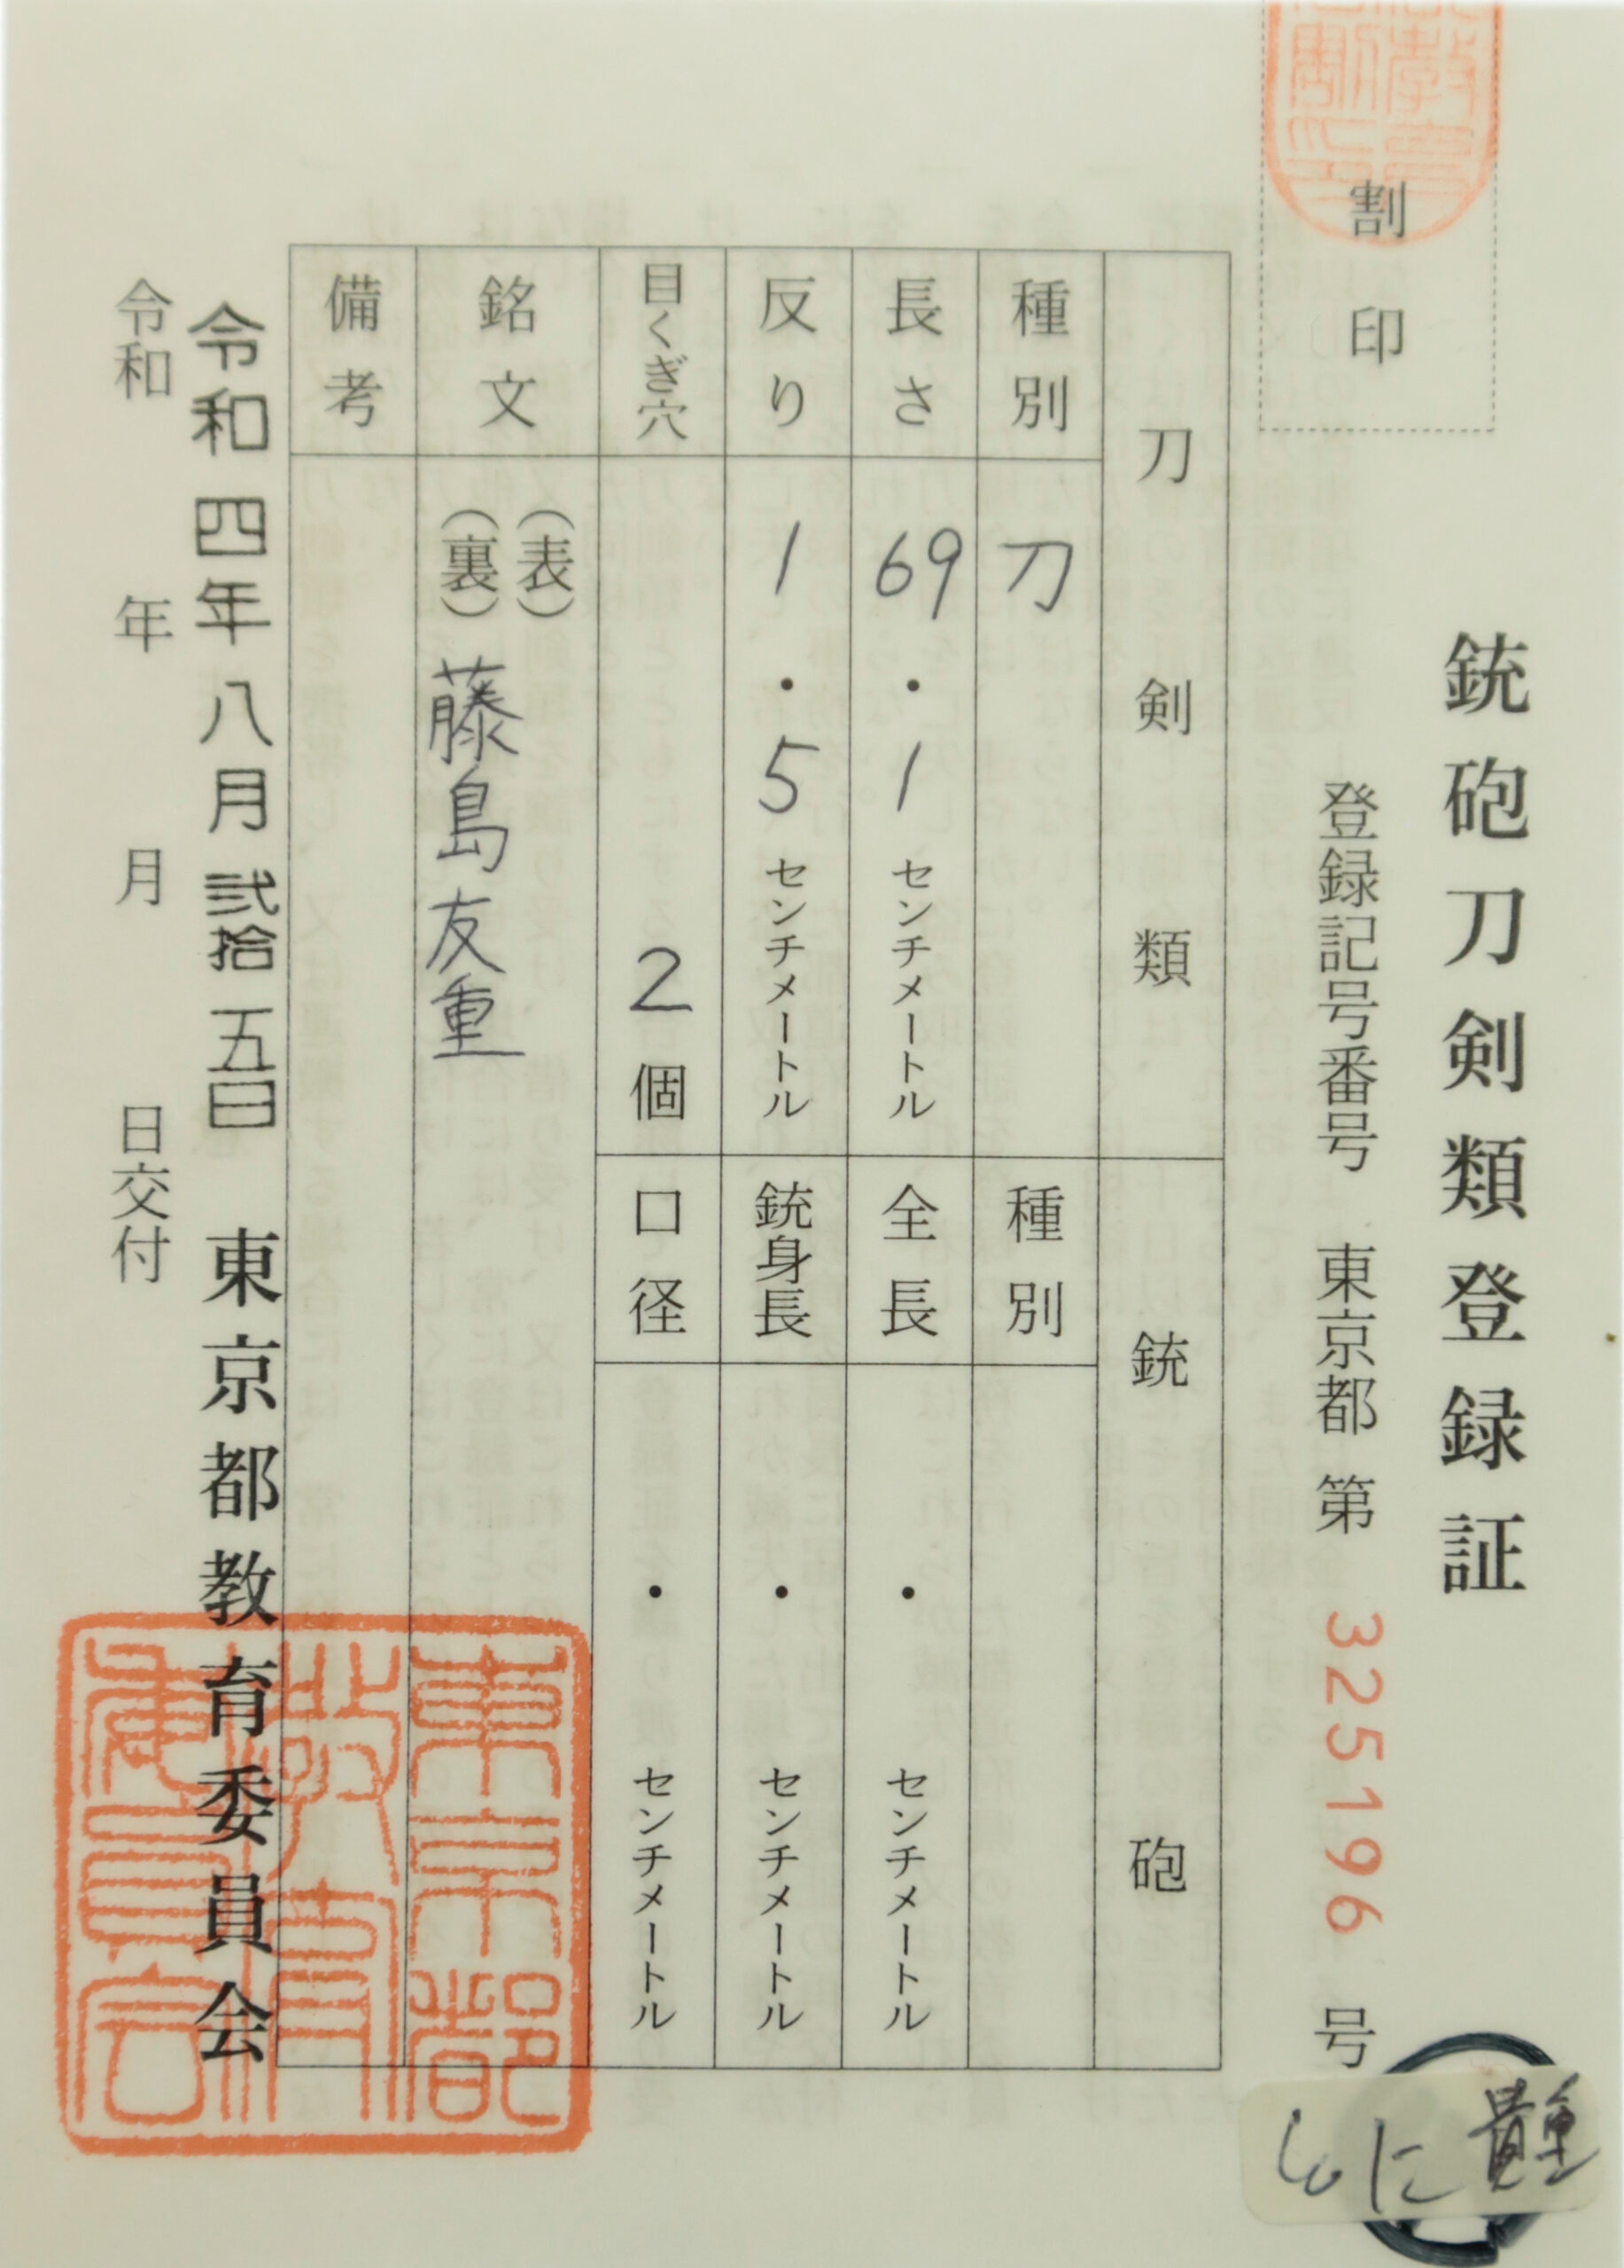 銃砲刀剣類登録証
割印
登録記号番号 東京都 第 325196 号
刀剣類
銃砲
種別 刀
種別
長さ 69・1 センチメートル
全長 ・ センチメートル
反り 1・5 センチメートル
銃身長 ・ センチメートル
目くぎ穴 2 個
口径 ・ センチメートル
銘文 (表)
(裏) 藤島友重
備考
令和四年八月弐拾五日 東京都教育委員会
令和 年 月 日交付
東京都
教育
委員会
貴重